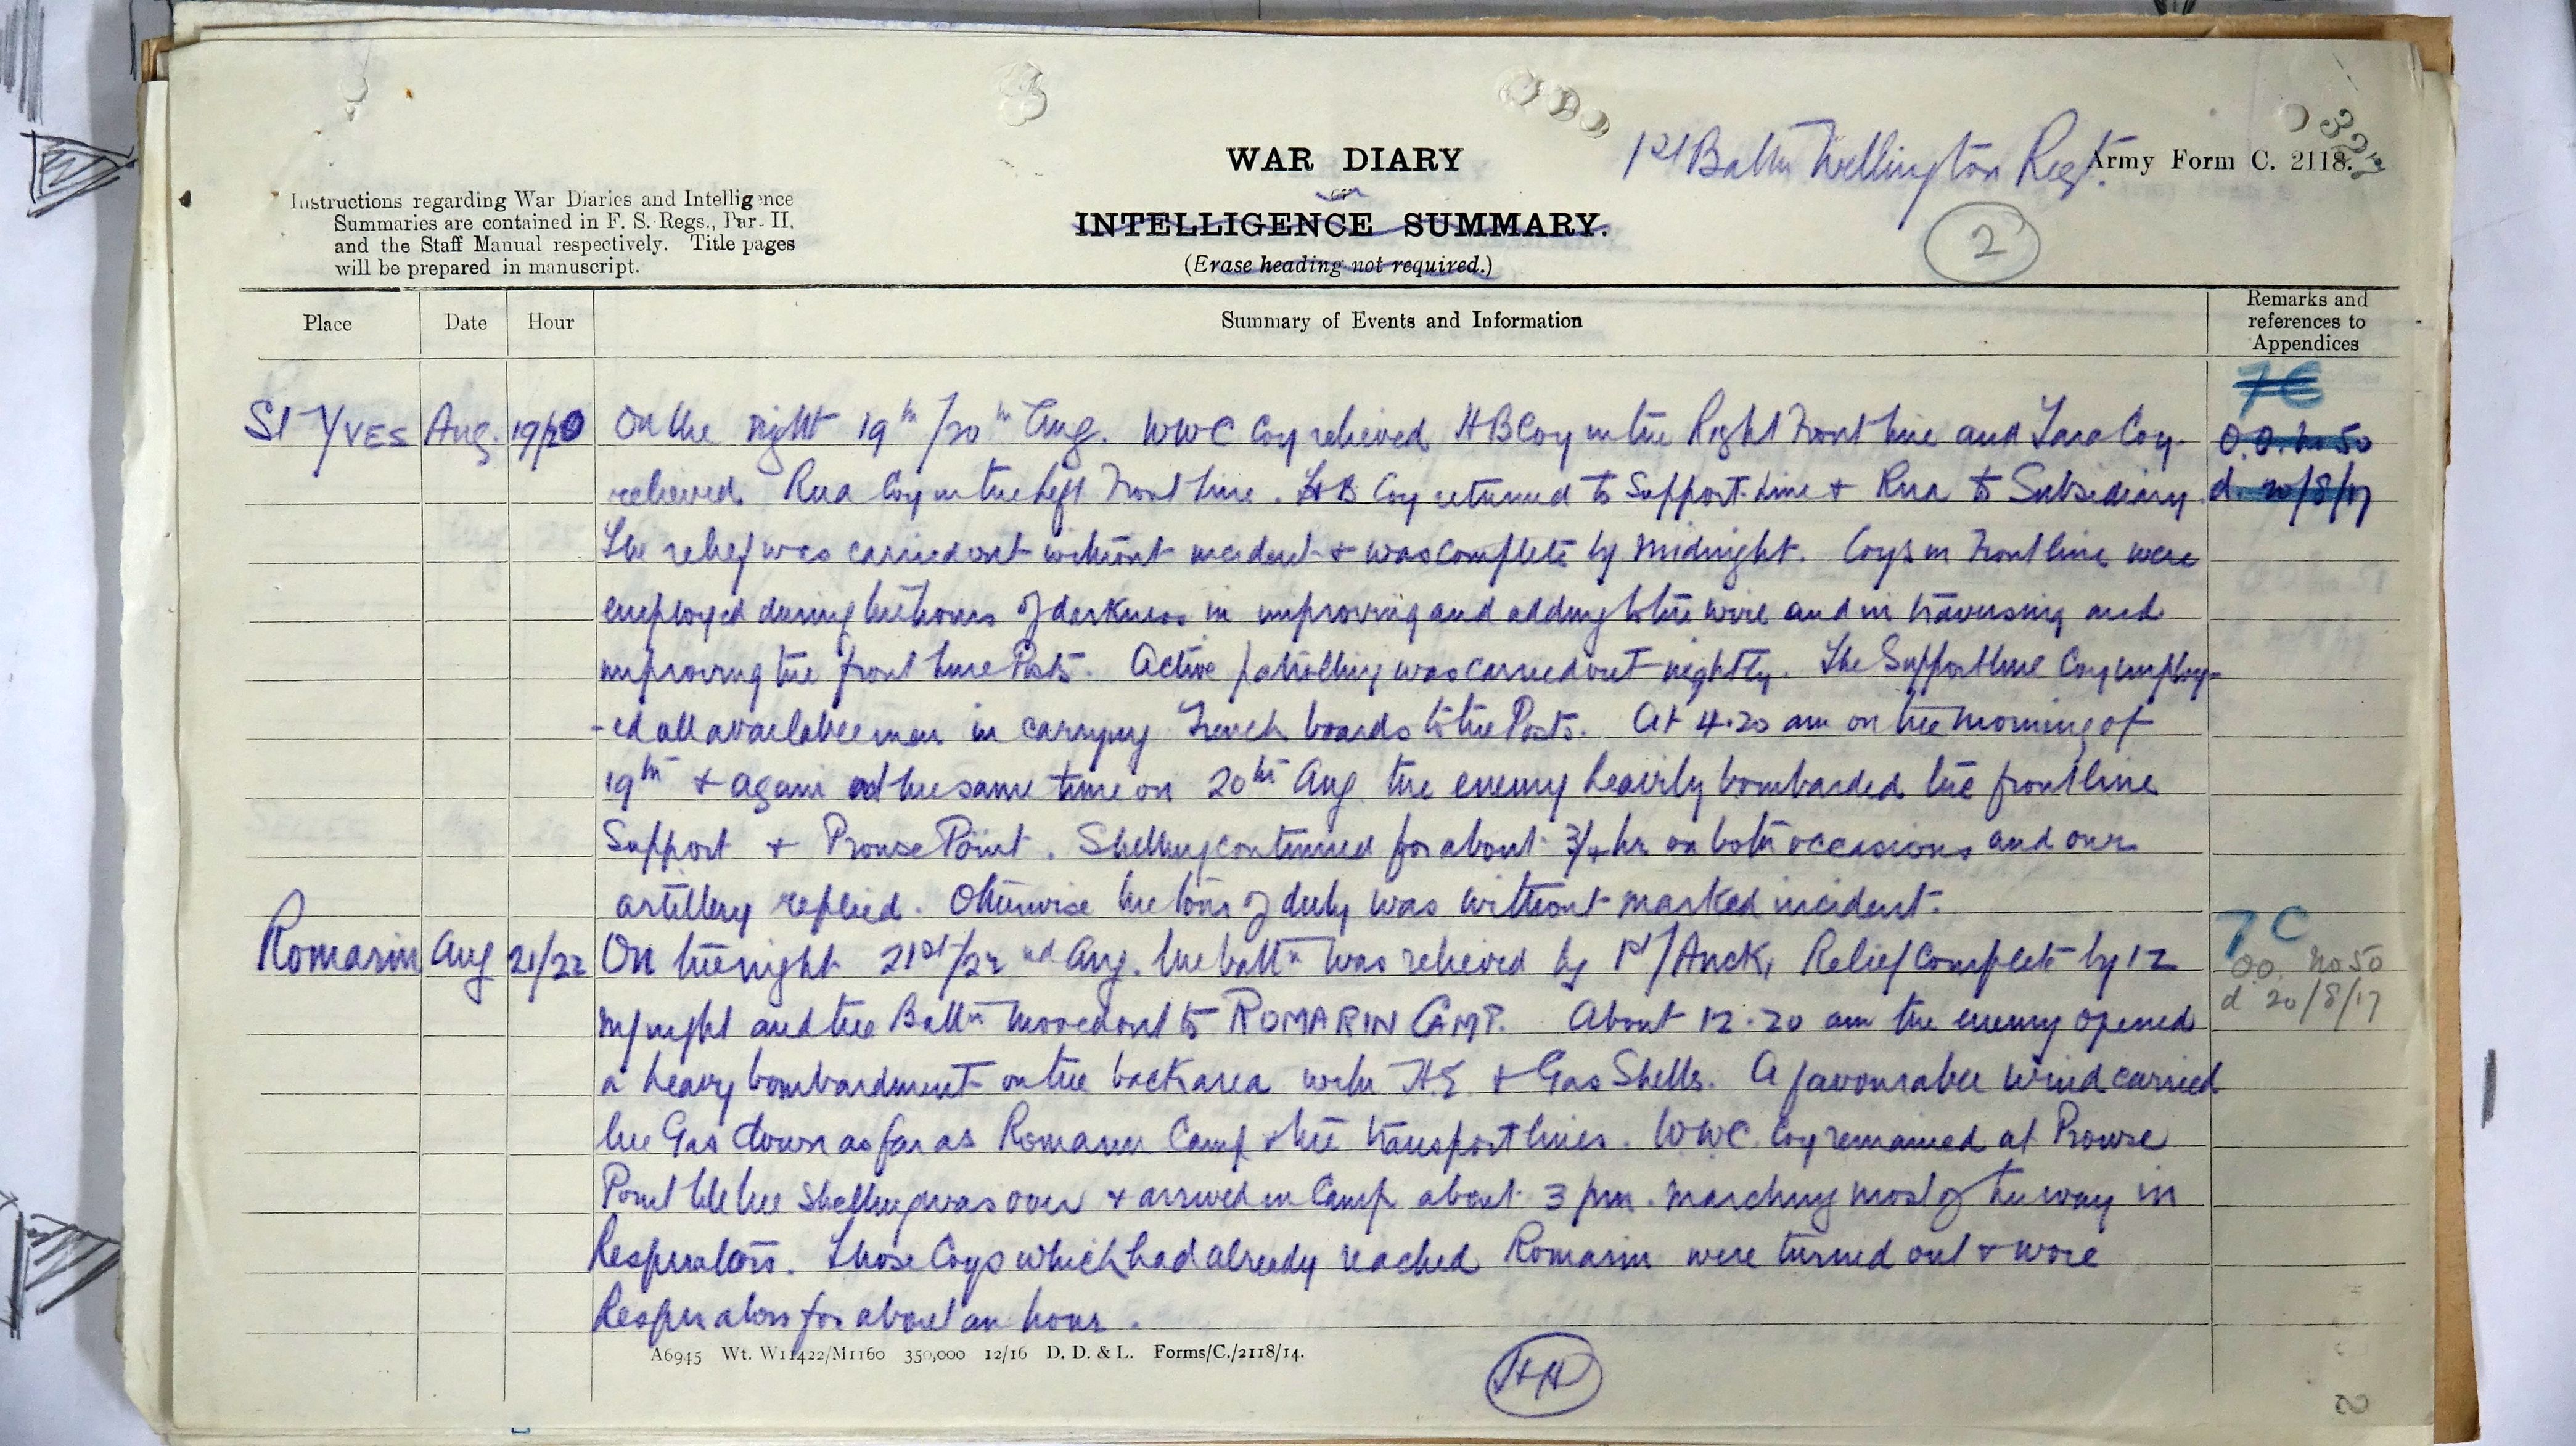 WAR DIARY
or
INTELLIGENCE SUMMARY.
(Erase heading not required.)
1st Battn Wellington Regt.
Army Form C. 2118.
2
Instructions regarding War Diaries and Intelligence
Summaries are contained in F. S. Regs., Part II.
and the Staff Manual respectively. Title pages
will be prepared in manuscript.
Place Date Hour Summary of Events and Information Remarks and references to Appendices
7C
St YVES Aug. 19/20 On the night 19th/20th Aug. WWC Coy relieved HB Coy in the Right Front line and Tara Coy. O.O. No 50
relieved Rua Coy in the Left Front Line. HB Coy returned to Support Line & Rua to Subsidiary. d. 20/8/17
The relief was carried out without incident & was complete by Midnight. Coys in Front line were
employed during the hours of darkness in improving and adding to the wire and in traversing and
improving the front line Posts. Active patrolling was carried out nightly. The Support line Coy employ-
-ed all available men in carrying Trench boards to the Posts. At 4.20 am on the morning of
19th & again at the same time on 20th Aug the enemy heavily bombarded the front line
Support & Prowse Point. Shelling continued for about 3/4 hr on both occasions and our
artillery replied. Otherwise the tour of duty was without marked incident.
7C
Romarin Aug 21/22 On the night 21st/22nd Aug. the battn was relieved by 1st/Auck, Relief Complete by 12 O.O. No 50
mjnight and the Battn moved out to ROMARIN CAMP. About 12.20 am the enemy opened d 20/8/17
a heavy bombardment on the back area with H.E & Gas Shells. A favourable wind carried
the Gas down as far as Romarin Camp & the transport lines. WWC. Coy remained at Prowse
Point till the shelling was over & arrived in Camp about 3 pm. marching most of the way in
Respirators. Those Coys which had already reached Romarin were turned out & wore
Respirators for about an hour.
A6945 Wt. W11422/M1160 350,000 12/16 D. D. & L. Forms/C./2118/14.
HH